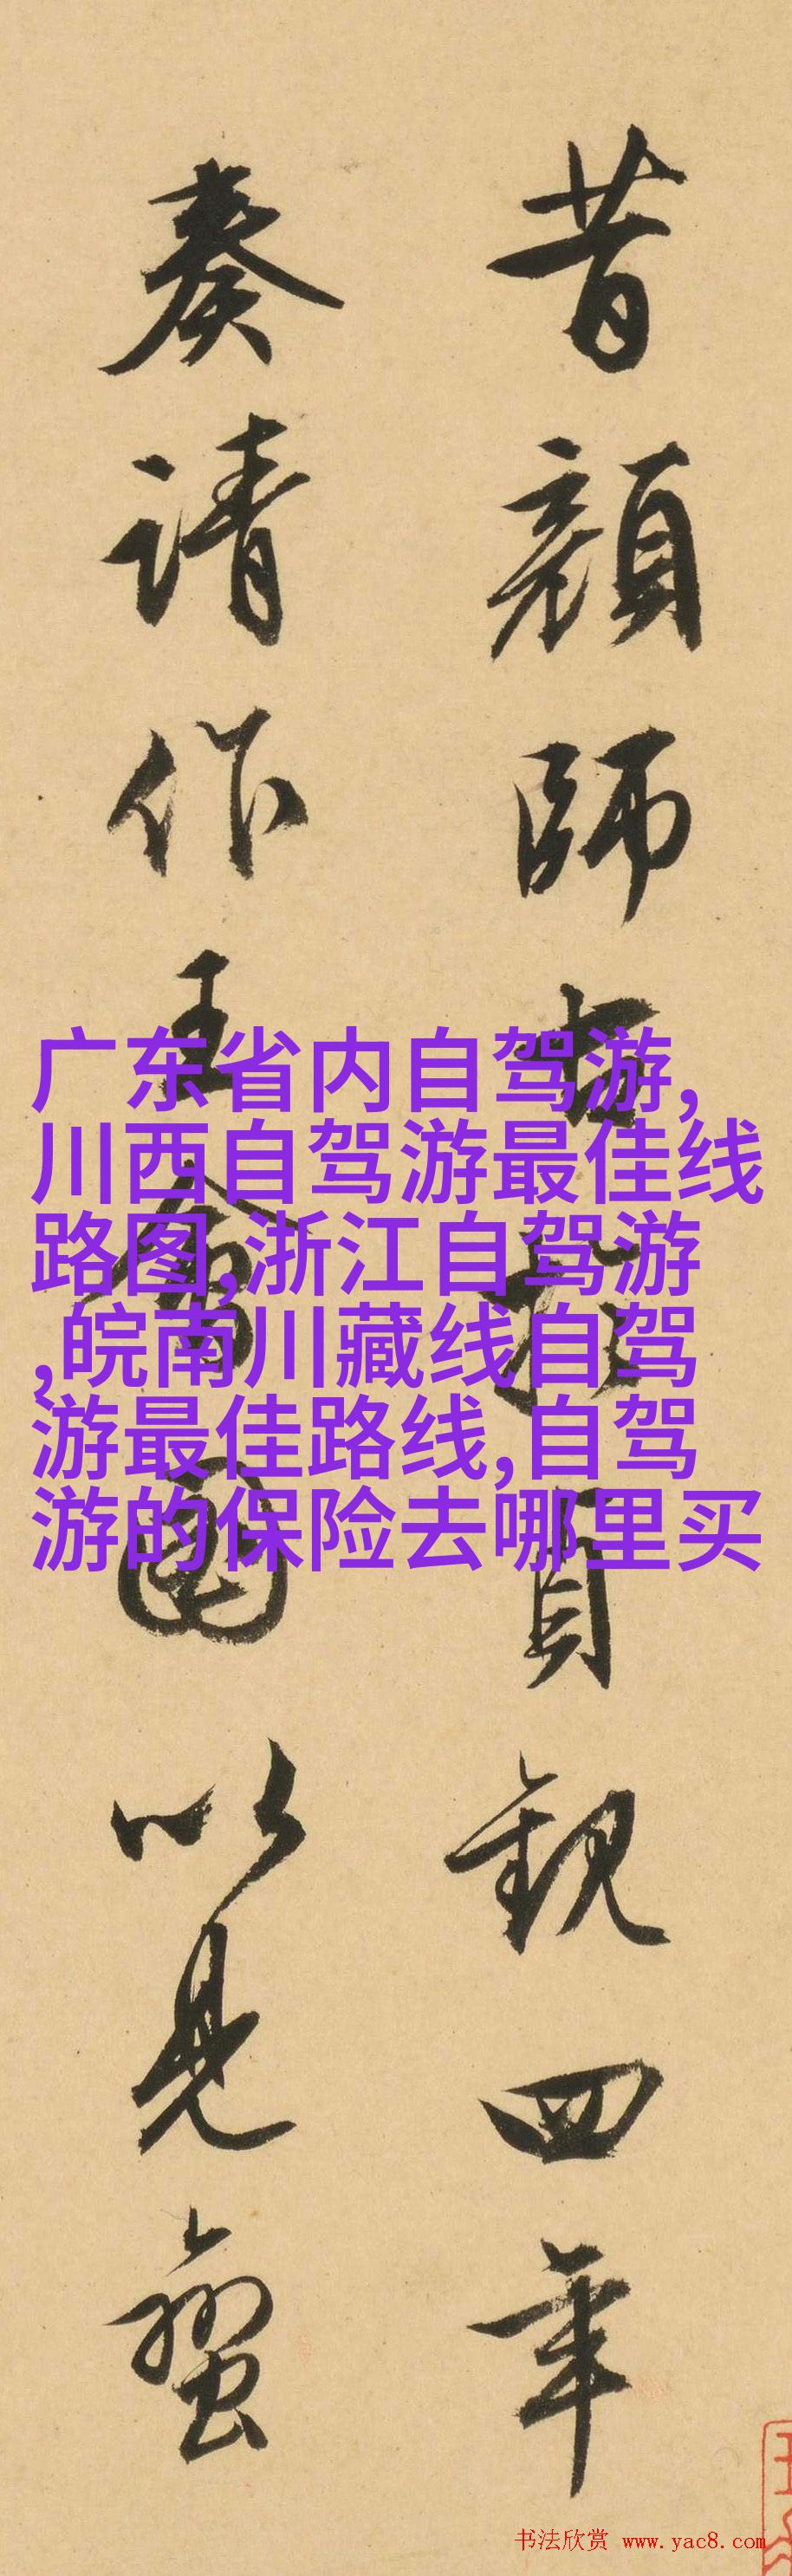 昔顔師古於貞觀四年
奏請作王會圖以見蠻
广东省内自驾游,
川西自驾游最佳线
路图,浙江自驾游
,皖南川藏线自驾
游最佳路线,自驾
游的保险去哪里买
书法欣赏 www.yac8.com